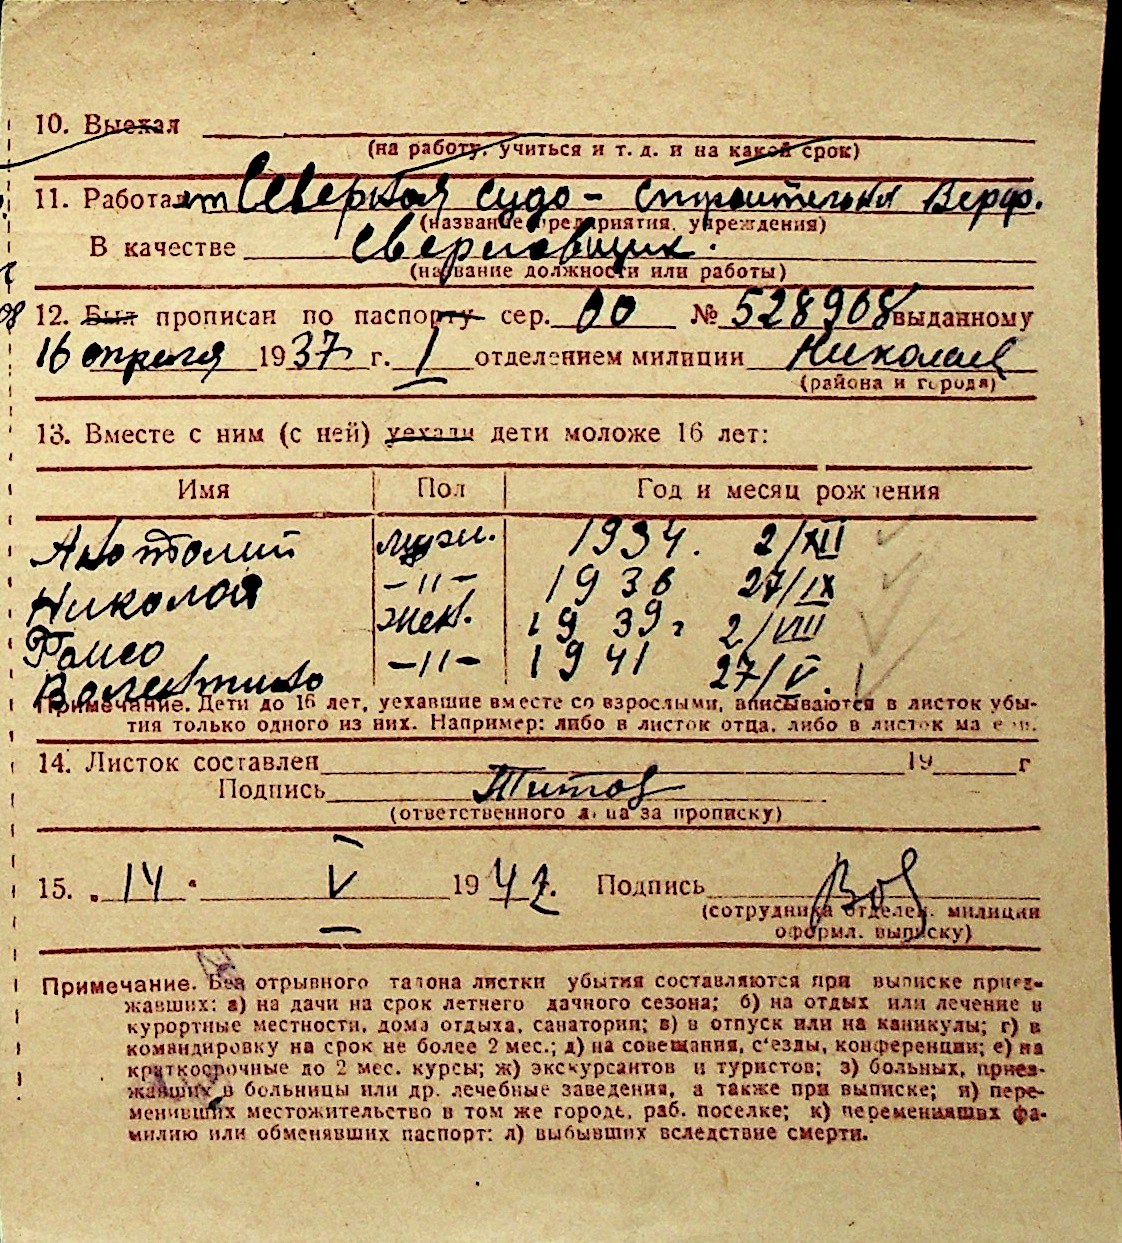 10. Выехал
(на работу, учиться и т. д. и на какой срок)
11. Работает Северная судо - строительная Верф.
(название предприятия, учреждения)
В качестве Сверловщик.
(название должности или работы)
12. Был прописан по паспорту сер. 00 № 528908 выданному
16 апреля 1937 г. I отделением милиции Николаев
(района и города)
13. Вместе с ним (с ней) уехали дети моложе 16 лет:
Имя Пол Год и месяц рождения
Анатолий муж. 1934. 2/XII
Николай -"- 1936 27/IX
жен. 1939г 2/VIII
Валентина -"- 1941 27/V.
Примечание. Дети до 16 лет, уехавшие вместе со взрослыми, вписываются в листок убы-
тия только одного из них. Например: либо в листок отца, либо в листок матери.
14. Листок составлен 19 г
Подпись Титов
(ответственного лица за прописку)
15. „14" V 1942. Подпись
(сотрудника отделен. милиции
оформл. выписку)
Примечание. Без отрывного талона листки убытия составляются при выписке приез-
жавших: а) на дачи на срок летнего дачного сезона; б) на отдых или лечение в
курортные местности, дома отдыха, санатории; в) в отпуск или на каникулы; г) в
командировку на срок не более 2 мес.; д) на совещания, с'езды, конференции; е) на
краткосрочные до 2 мес. курсы; ж) экскурсантов и туристов; з) больных, приез-
жавших в больницы или др. лечебные заведения, а также при выписке; и) пере-
менивших местожительство в том же городе, раб. поселке; к) переменивших фа-
милию или обменявших паспорт; л) выбывших вследствие смерти.